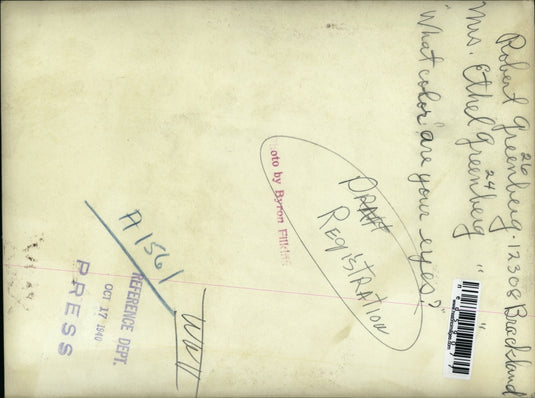 Robert Greenberg · 12308 Brackland
26
Mrs. Ethel Greenberg "
24
"What color are your eyes?"
oto by Byron Filkins
DRAFT
REGISTRATION
A1561
REFERENCE DEPT.
OCT 17 1940
PRESS
WWII